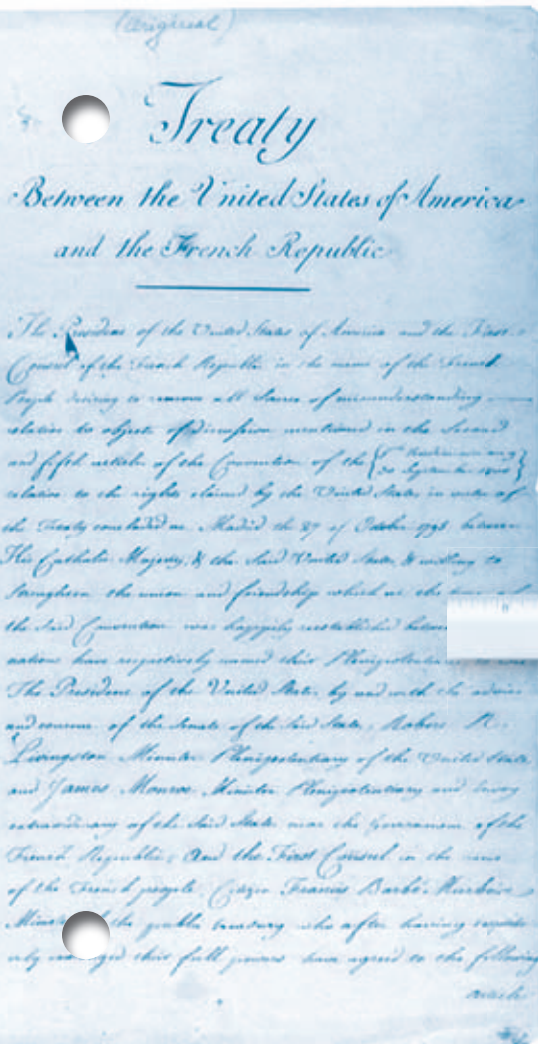 (Original)
Treaty
Between the United States of America
and the French Republic
The President of the United States of America and the First
Consul of the French Republic in the name of the French
People desiring to remove all Source of misunderstanding
relative to objects of discussion mentioned in the Second
and fifth articles of the Convention of the
30 September 1800
relative to the rights claimed by the United States in virtue of
the Treaty concluded at Madrid the 27 of October 1795 between
His Catholic Majesty, & the Said United States, & willing to
Strengthen the union and friendship which at the time of
the Said Convention was happily reestablished
nations have respectively named their
The President of the United States, by and with the advice
and consent of the Senate of the Said States, Robert R.
Livingston Minister Plenipotentiary of the United States
and James Monroe Minister Plenipotentiary and Envoy
extraordinary of the Said States near the Government of the
French Republic; And the First Consul in the name
of the French people, Citizen Francis Barbé Marbois
Minister the public treasury who after having
their full powers have agreed to the following